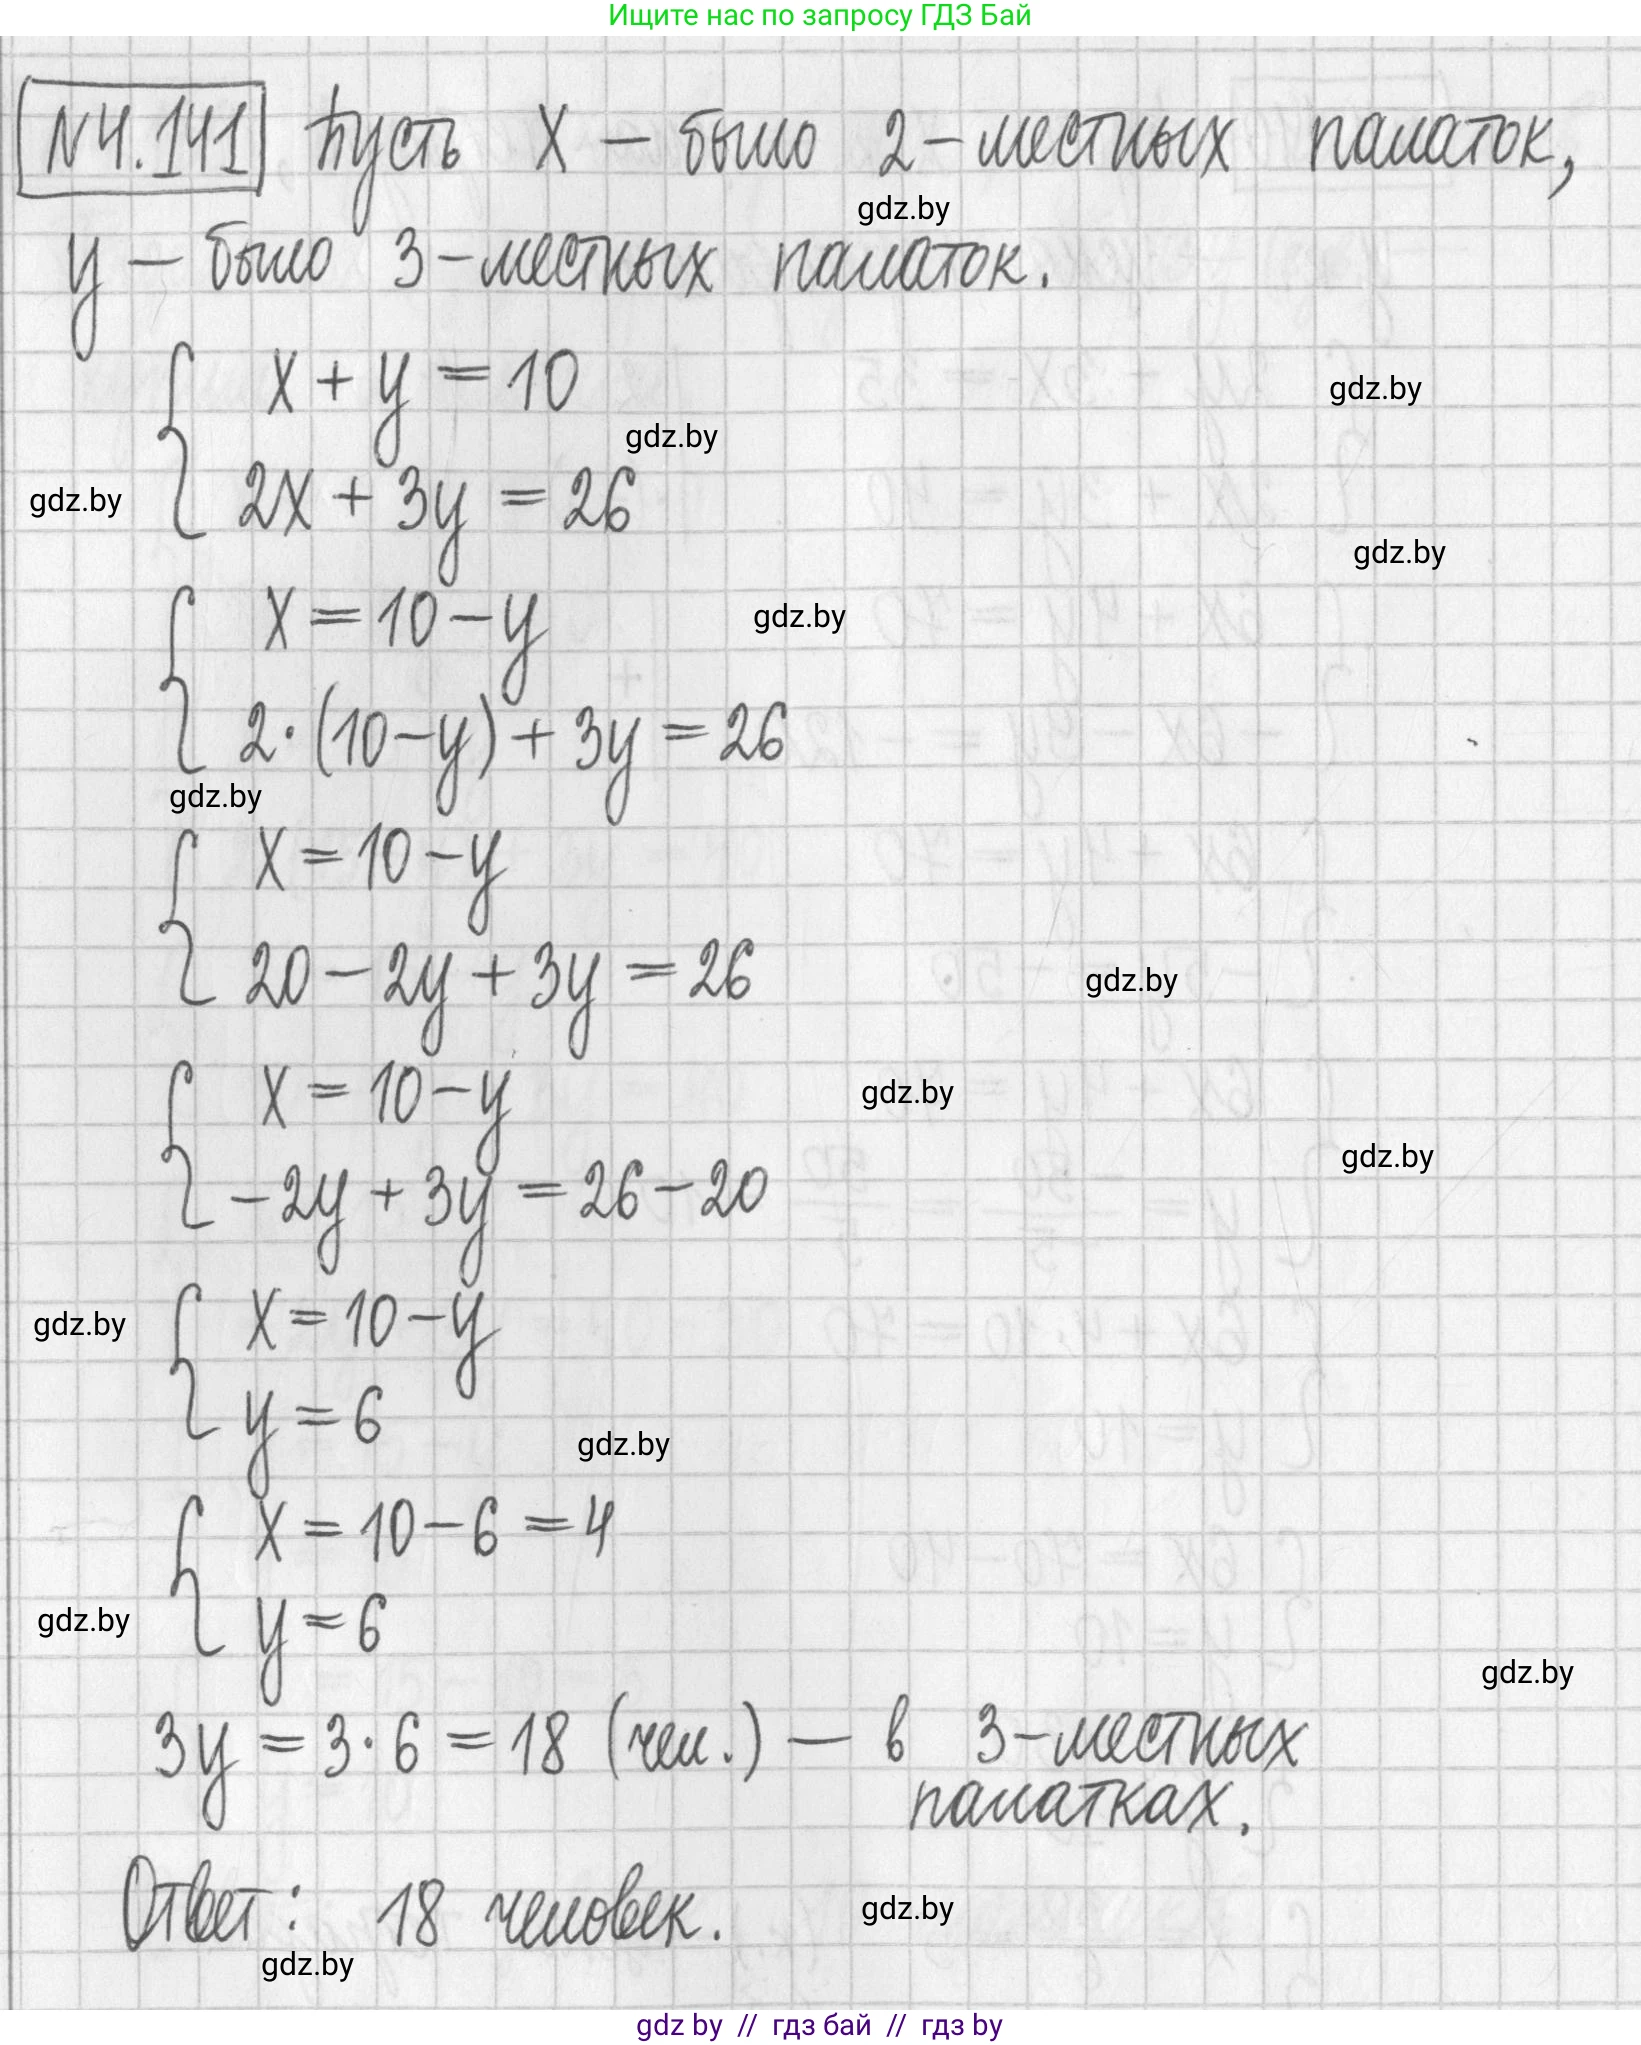 Ищите нас по запросу ГДЗ Бай
N4.141 Пусть x – было 2-местных палаток,
gdz.by
y – было 3-местных палаток.
x + y = 10
gdz.by
gdz.by
2x + 3y = 26
gdz.by
gdz.by
x = 10 – y
gdz.by
2·(10–y) + 3y = 26
gdz.by
x = 10 – y
20 – 2y + 3y = 26
gdz.by
x = 10 – y
gdz.by
gdz.by
–2y + 3y = 26 – 20
x = 10 – y
gdz.by
y = 6
gdz.by
x = 10 – 6 = 4
y = 6
gdz.by
gdz.by
3y = 3·6 = 18 (чел.) – в 3-местных
палатках.
Ответ: 18 человек.
gdz.by
gdz.by
gdz by // гдз бай // гдз by